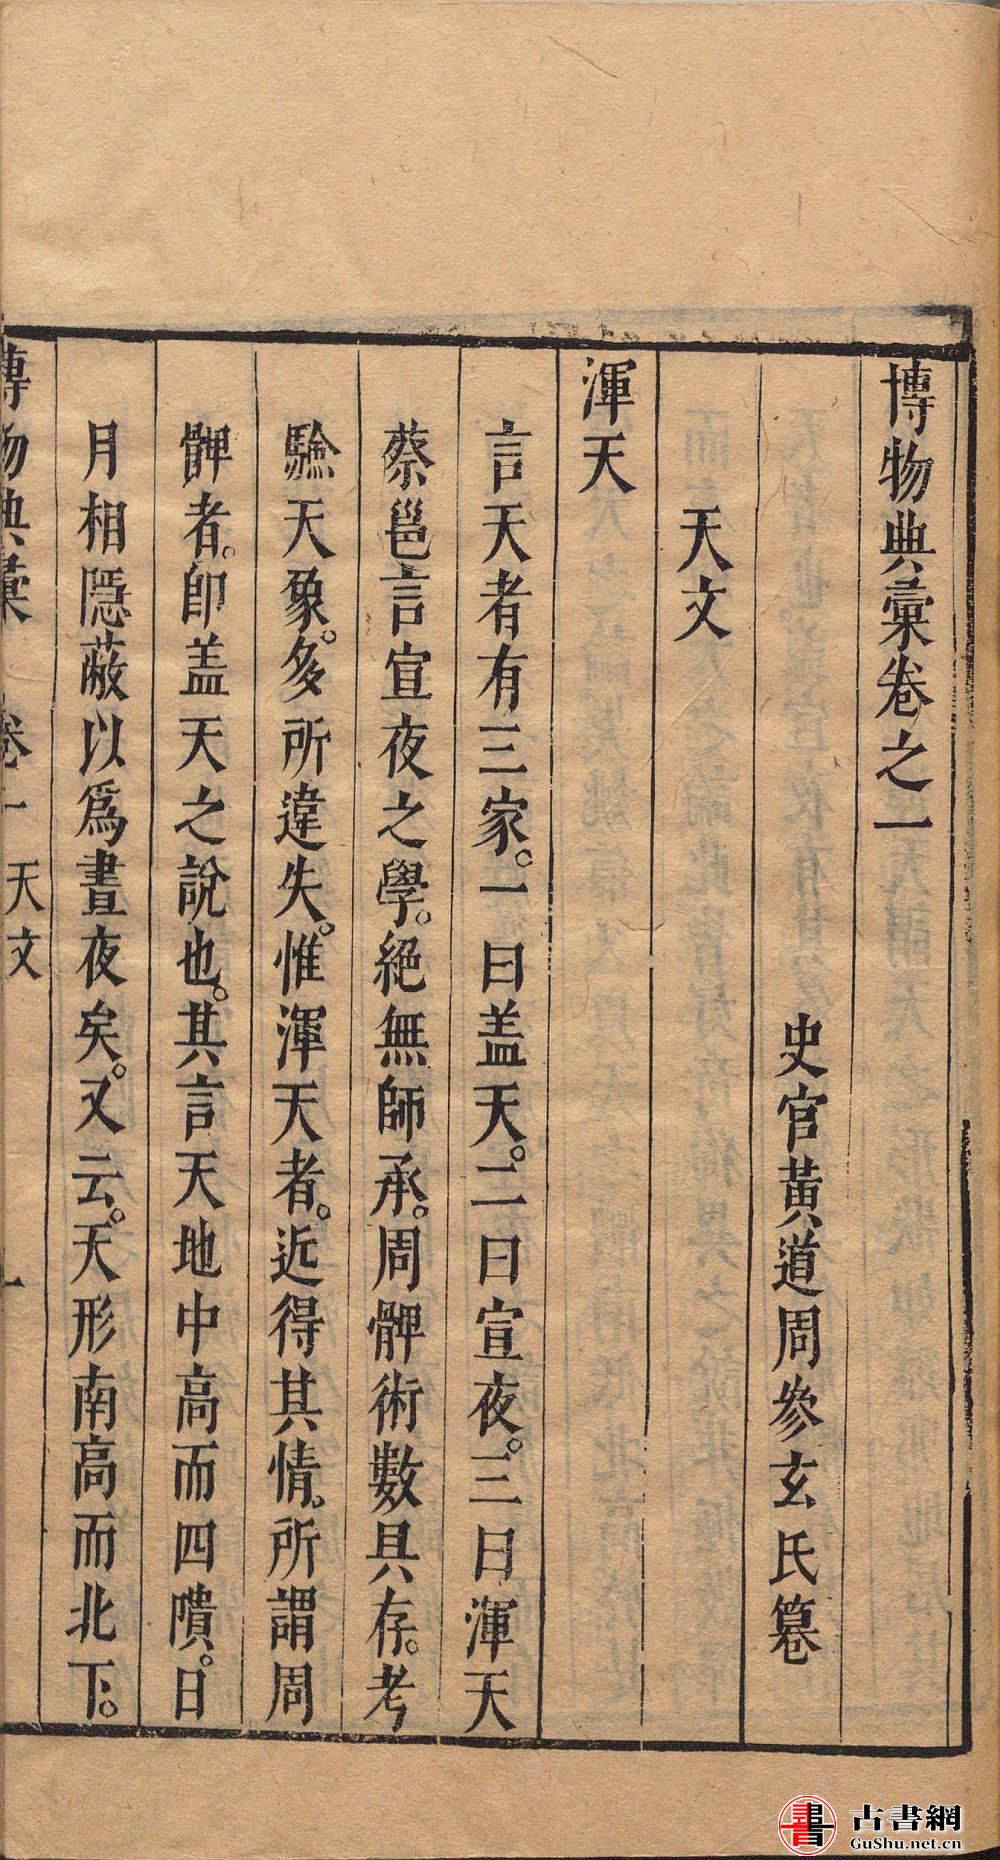 博物典彙卷之一
史官黃道周參玄氏篹
天文
渾天
言天者有三家。一曰盖天。二曰宣夜。三曰渾天
蔡邕言宣夜之學。絕無師承。周髀術數具存。考
驗天象。多所違失。惟渾天者。近得其情。所謂周
髀者。即盖天之說也。其言天地中高而四隤。日
月相隱蔽以爲晝夜矣。又云。天形南高而北下。
博物典彙 卷一 天文 一
古書網
GuShu.net.cn